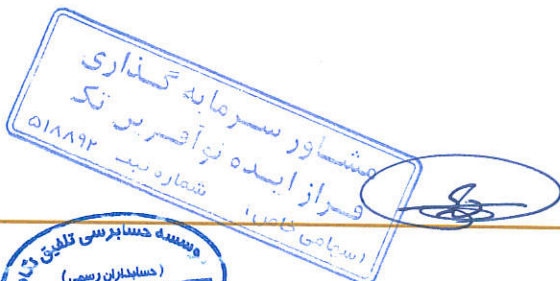 مشاور سرمایه گذاری
فراز ایده نوآفرین تک
(سهامی خاص)
شماره ثبت ۵۱۸۸۹۲
موسسه حسابرسی تلفیق
(حسابداران رسمی)